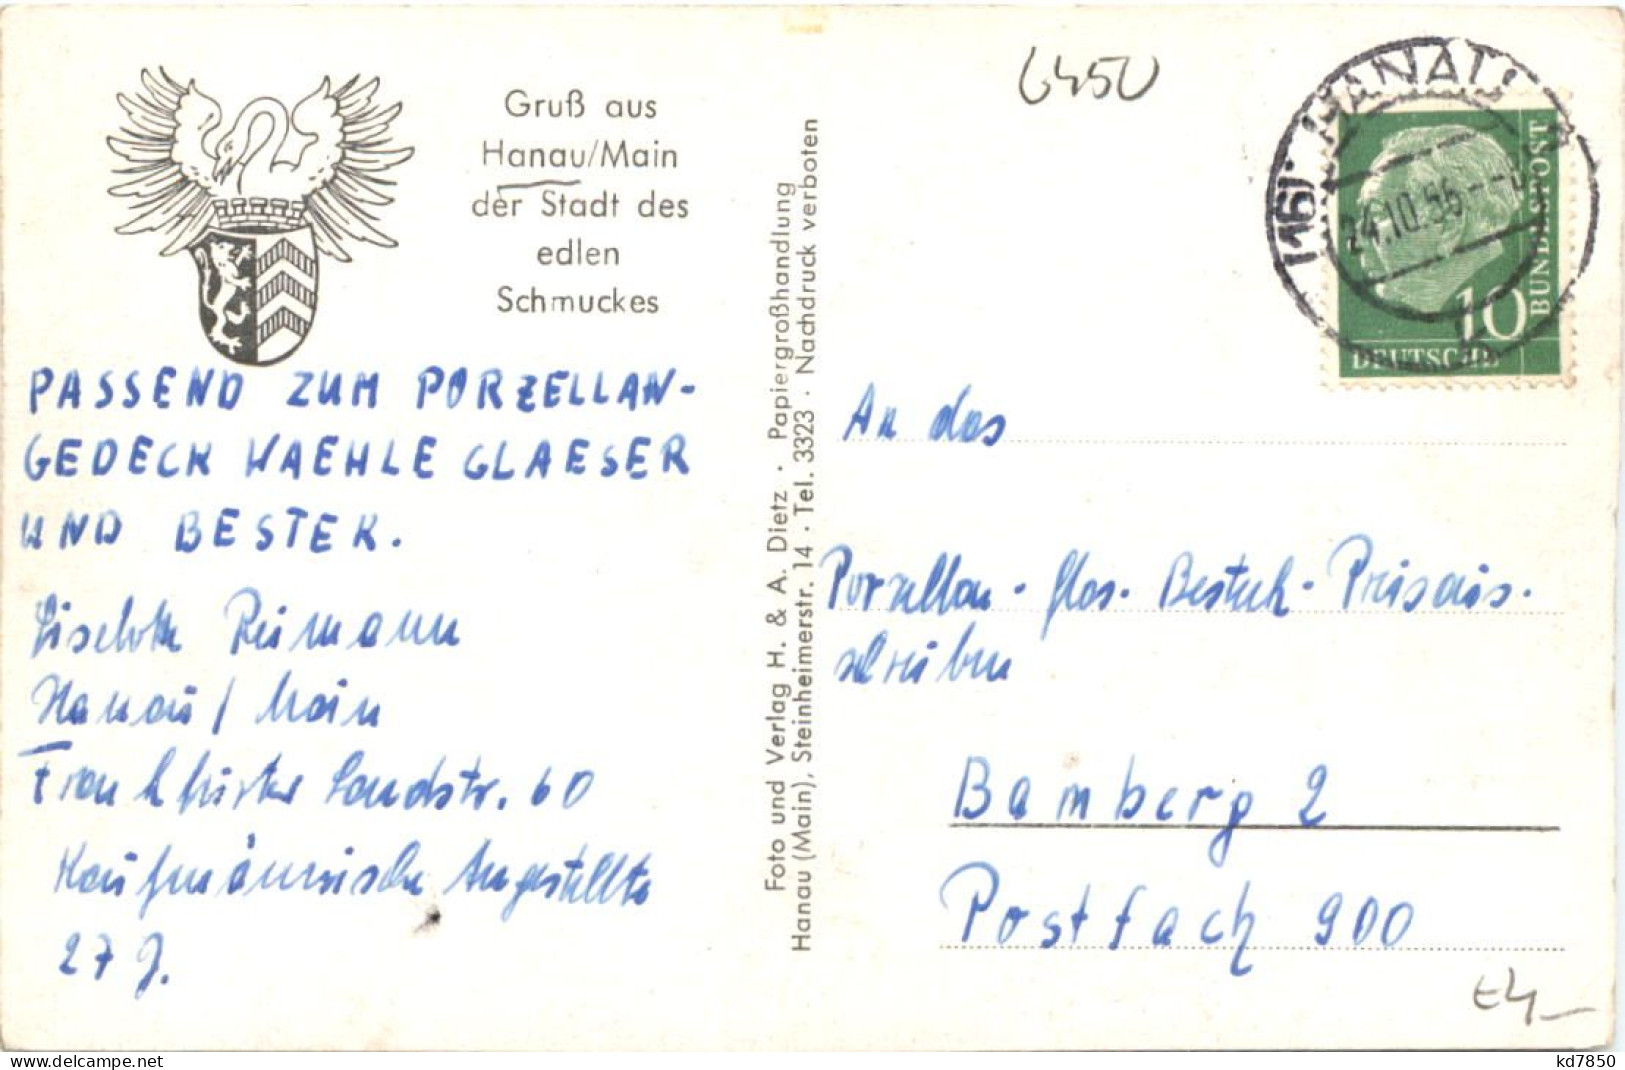 Gruß aus
Hanau/Main
der Stadt des
edlen
Schmuckes
PASSEND ZUM PORZELLAN-
GEDECK WAEHLE GLAESER
UND BESTEK.
Liselotte Reimann
Hanau / Main
Frankfurter Landstr. 60
Kaufmännische Angestellte
27 J.
Foto und Verlag H. & A. Dietz · Papiergroßhandlung
Hanau (Main), Steinheimerstr. 14 · Tel. 3323 · Nachdruck verboten
6450
(16) HANAU
24.10.56
10
DEUTSCHE
BUNDESPOST
An das
Porzellan-Glas-Besteck-Preisaus-
schreiben
Bamberg 2
Postfach 900
www.delcampe.net
kd7850